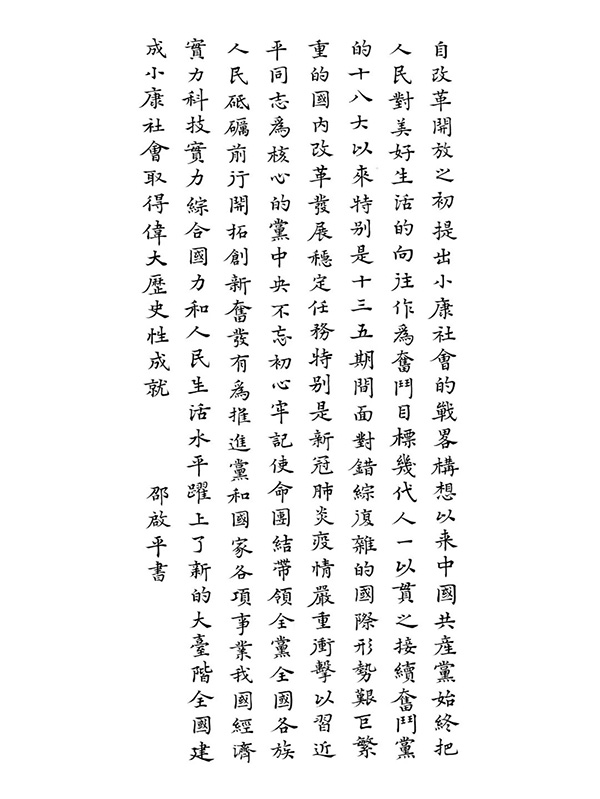 自改革開放之初提出小康社會的戰畧構想以来中國共産黨始終把
人民對美好生活的向往作為奮鬥目標幾代人一以貫之接續奮鬥黨
的十八大以來特别是十三五期間面對錯綜復雜的國際形勢艱巨繁
重的國内改革發展穩定任務特别是新冠肺炎疫情嚴重衝擊以習近
平同志為核心的黨中央不忘初心牢記使命團結帶領全黨全國各族
人民砥礪前行開拓創新奮發有為推進黨和國家各項事業我國經濟
實力科技實力綜合國力和人民生活水平躍上了新的大臺階全國建
成小康社會取得偉大歷史性成就 邵啟平書